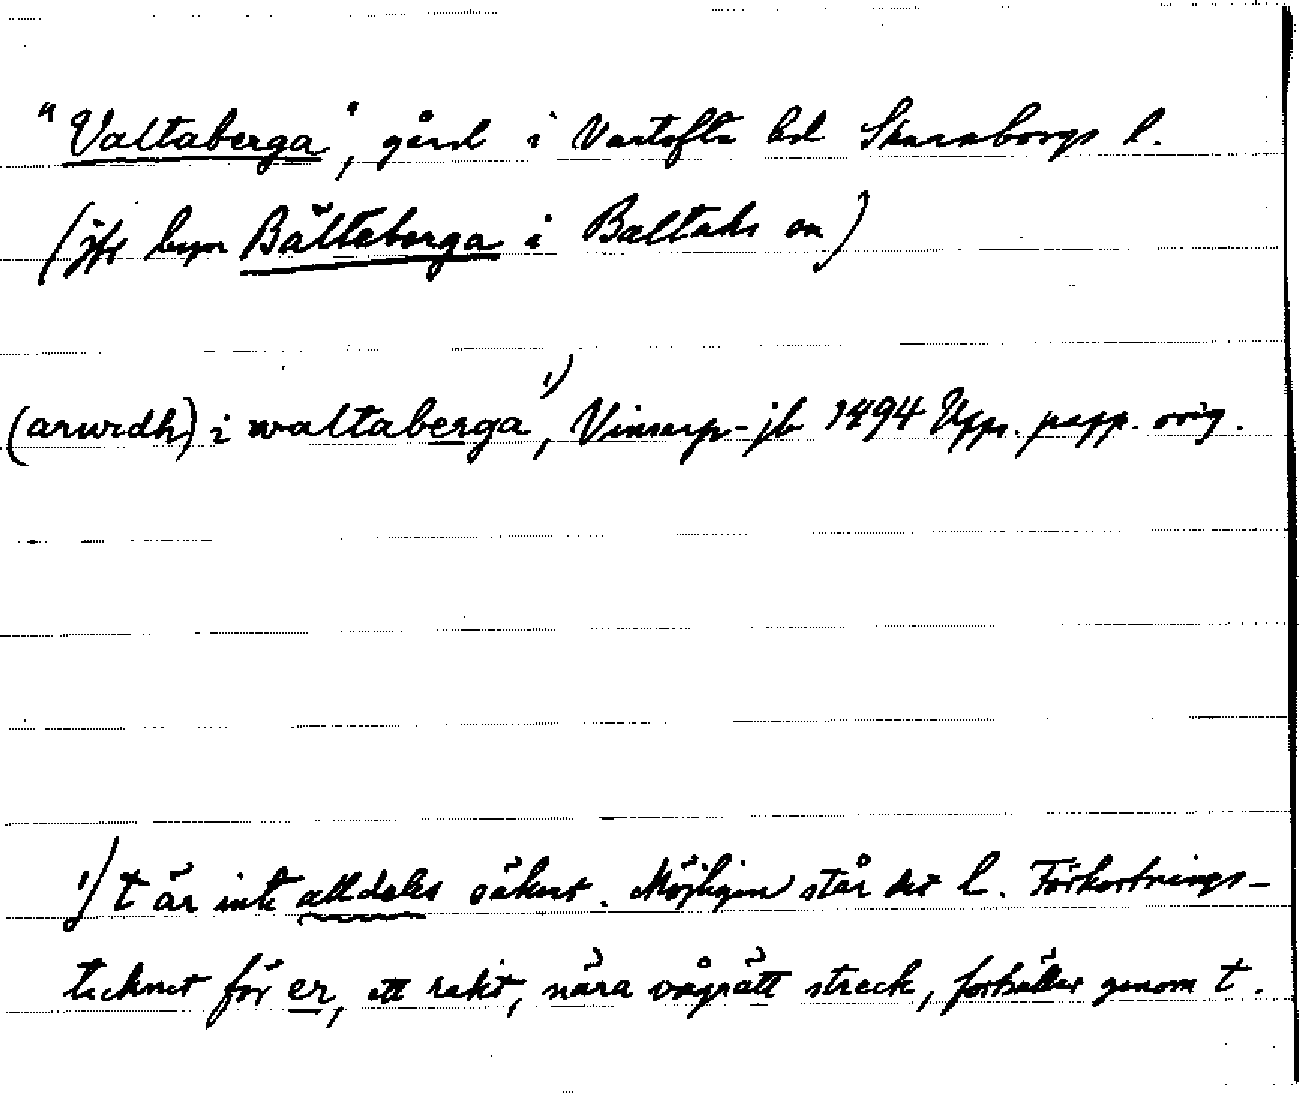 "Valtaberga", gård i Vartofta hd Skaraborgs l.
(jfr byn Bälteberga i Baltaks sn)
(arwidh) i waltaberga ¹⁾, Vinsarp-jb 1494 Upps. papp. orig.
¹⁾ t är inte alldeles säkert. Möjligen står det l. Förkortnings-
tecknet för er, ett rakt, nära vågrätt streck, fortsätter genom t.